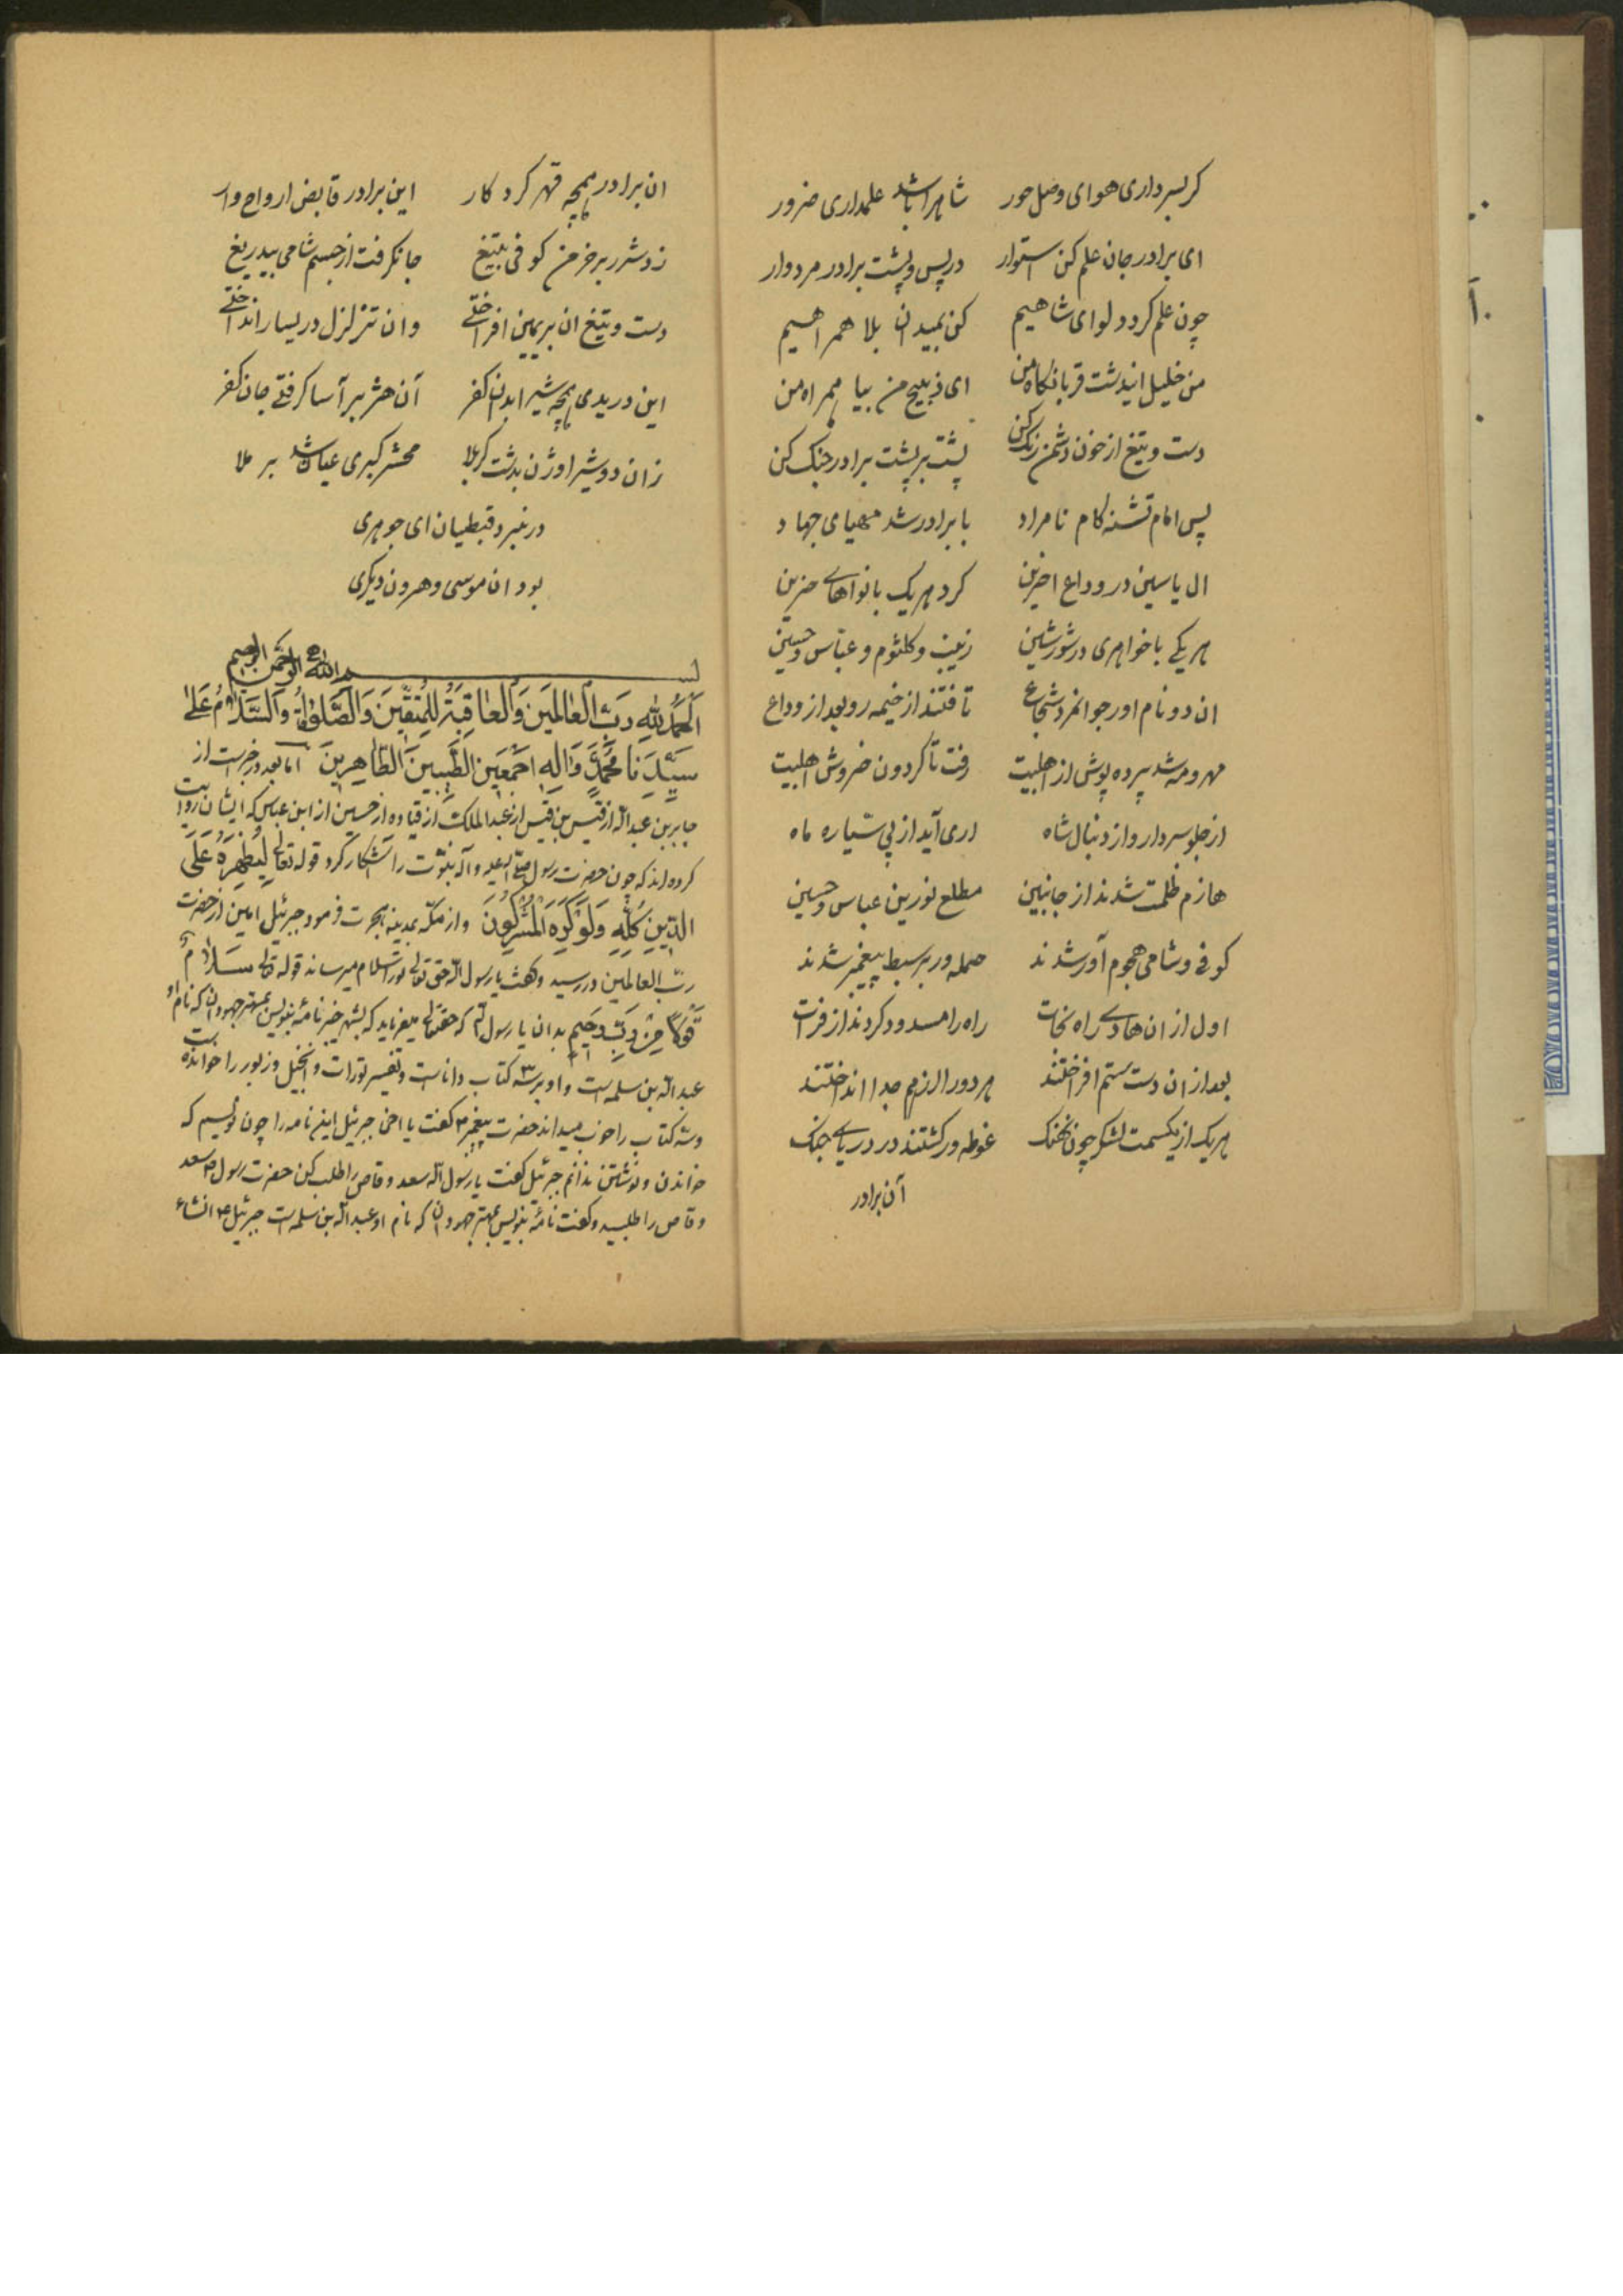 کر بسر داری هوای وصل حور شاه را باشد علمداری ضرور
ای برادر جان علم کن استوار در پس و پشت برادر مردوار
چون علم کردد لوای شاهیم کن بمیدان بلا همراهیم
من خلیل ایندشت قربانگاه من ای ذبیح من بیا همراه من
دست و تیغ از خون دشمن رنک کن پشت بر پشت برادر جنک کن
پس امام تشنه کام نامراد با برادر شد مهیای جهاد
ال یاسین در وداع اخرین کرد هر یک با نواهای حزین
هر یکی با خواهری در شور شین زینب و کلثوم و عباس و حسین
ان دو نام اور جوانمرد شجاع تافتند از خیمه رو بعد از وداع
مهر و مه شد پرده پوش از اهلبیت رفت تا کردون خروش اهلبیت
از جلو سردار و از دنبال شاه اری آید از پی سیاره ماه
هازم ظلمت شدند از جانبین مطلع نورین عباس و حسین
کوفی و شامی هجوم آور شدند حمله ور بر سبط پیغمبر شدند
اول از ان هادی راه نجات راه را مسدود کردند از فرات
بعد از ان دست ستم افراختند هر دو را از هم جدا انداختند
هر یک از یکسمت لشکر چون نهنک غوطه ور کشتند در دریای جنک
آن برادر
ان برادر همچه قهر کردکار این برادر قابض ارواح وار
زد شرر بر خرمن کوفی بتیغ جان گرفت از جسم شامی بیدریغ
دست و تیغ ان بر یمین افراختی وان تزلزل در یسار انداختی
این دریدی همچه شیر ابدان کفر آن هژبر آسا کرفتی جان کفر
زان دو شیر اوژن بدشت کربلا محشر کبری عیان شد بر ملا
در نبرد قبطیان ای جوهری
بود ان موسی و هرون دیکری
بسم الله الرحمن الرحیم
اَلحَمدُ لِلّهِ رَبِّ العالَمینَ وَالعاقِبَةُ لِلمُتَّقینَ وَالصَّلوةُ وَالسَّلامُ عَلی
سَیِّدِنا مُحَمَّدٍ وَآلِهِ اَجمَعینَ الطَّیِّبینَ الطّاهِرینَ اما بعد در خبرست از
جابر بن عبدالله از قیس بن قیس از عبدالملک از قتاده از حسین از ابن عباس که ایشان روایت
کرده اند که چون حضرت رسول صلی الله علیه و آله نبوّت را آشکار کرد قوله تعالی لِیُظهِرَهُ عَلَی
الدّینِ کُلِّهِ وَلَو کَرِهَ المُشرِکُونَ و از مکّه بمدینه هجرت فرمود جبرئیل امین از حضرت
ربّ العالمین در رسید و کفت یا رسول الله حق تعالی تو را سلام میرساند قوله تعالی سَلامٌ
قَولاً مِن رَبٍّ رَحیمٍ بدان یا رسول الله که حقتعالی میفرماید که بشهر خیبر نامهٔ بنویس بمهتر جهودان که نام او
عبدالله بن سلمه است و او بر سه کتاب داناست و تفسیر تورات و انجیل و زبور را خوانده است
و سه کتاب را خوب میداند حضرت پیغمبر کفت یا اخی جبرئیل این نامه را چون نویسم که
خواندن و نوشتن ندانم جبرئیل کفت یا رسول الله سعد وقاص را طلب کن حضرت رسول سعد
وقاص را طلبید و کفت نامهٔ بنویس بمهتر جهودان که نام او عبدالله بن سلمه است جبرئیل انشاء